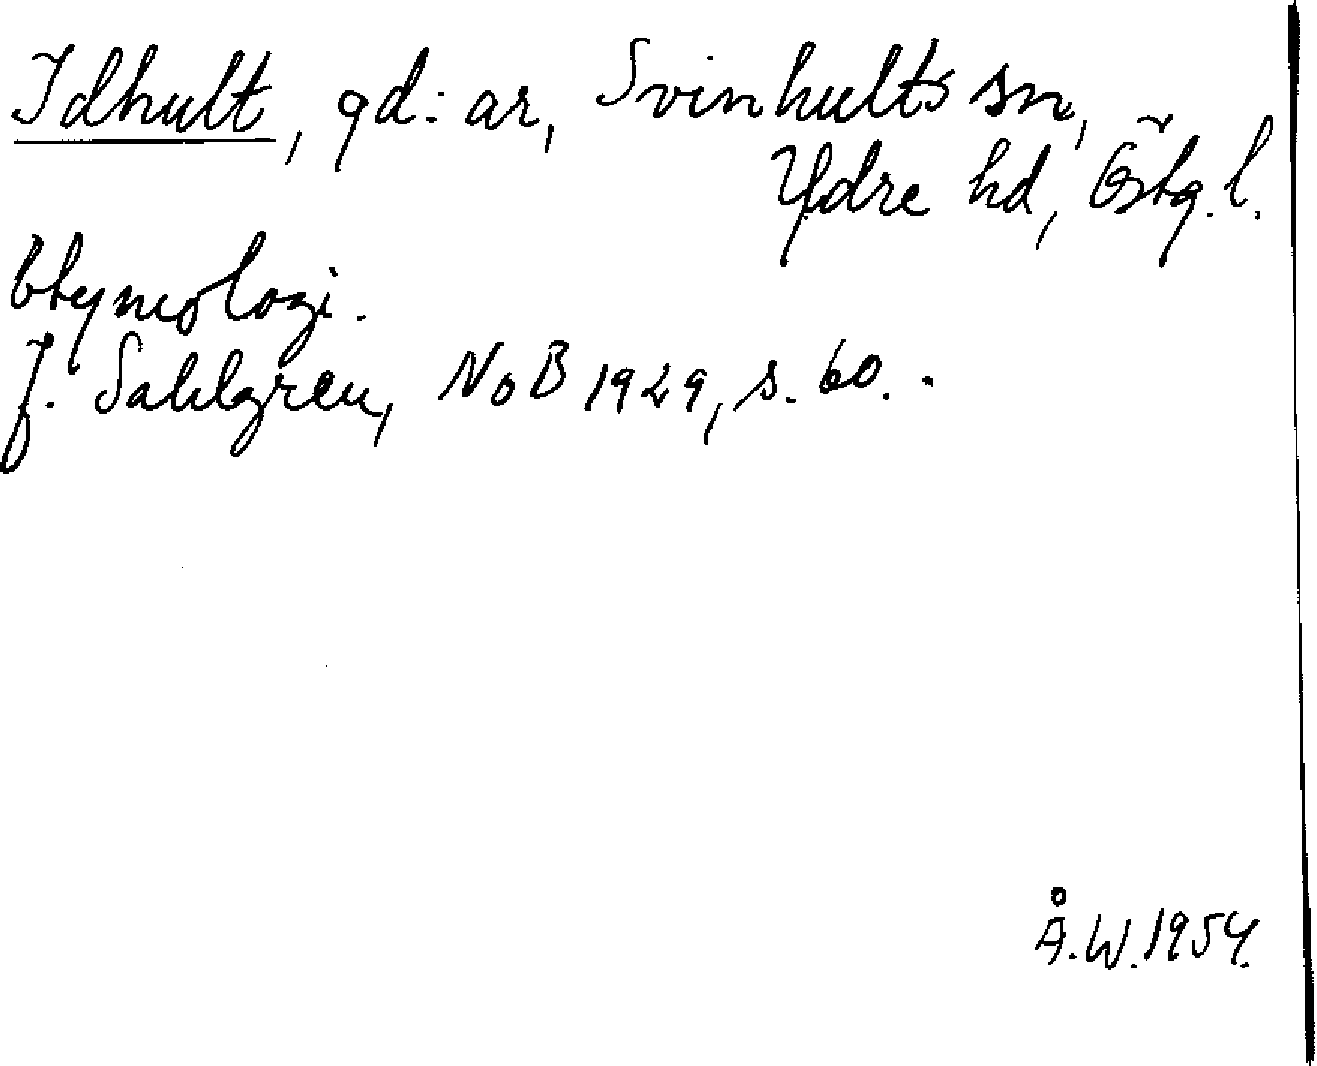 Idhult, gd:ar, Svinhults sn,
Ydre hd, Östg. l.
Etymologi.
J. Sahlgren, NoB 1929, s. 60.
Å.W. 1954.